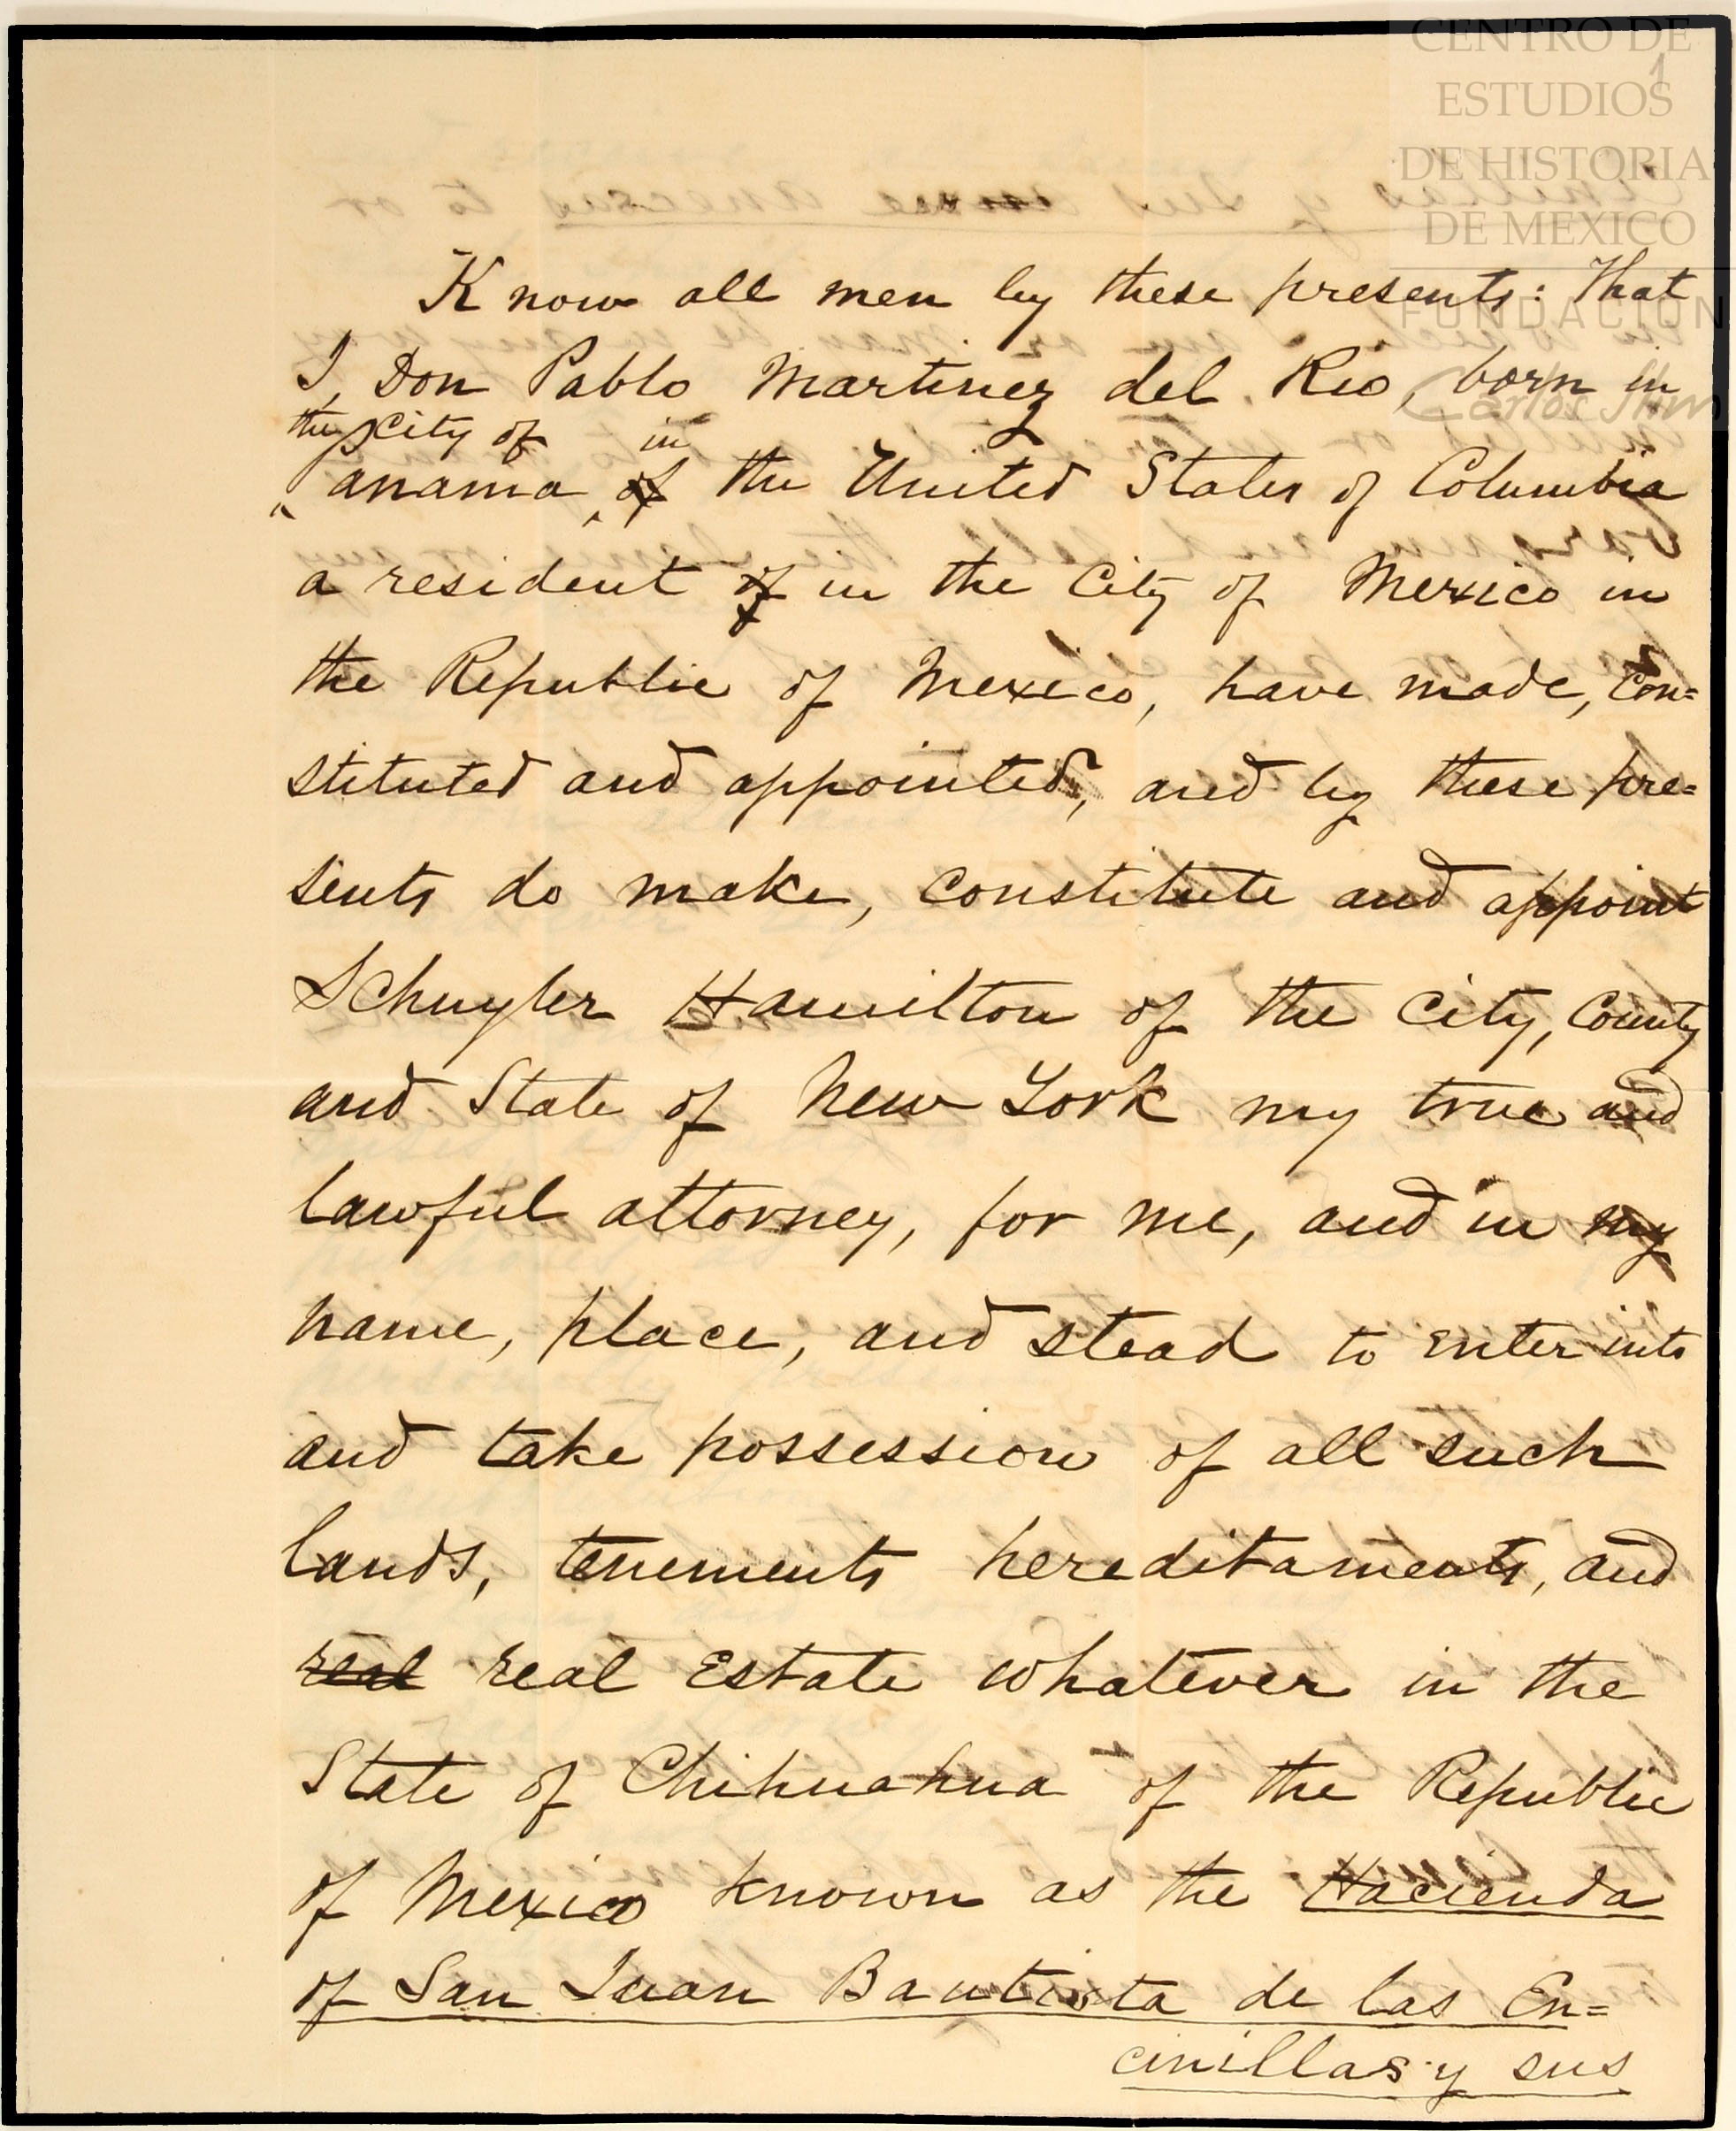 CENTRO DE
ESTUDIOS
DE HISTORIA
DE MEXICO
FUNDACION
Carlos Slim
1
Know all men by these presents: That
I, Don Pablo Martinez del Rio, born in
the City of in
Panama, of the United States of Columbia
a resident of in the City of Mexico in
the Republic of Mexico, have made, con=
stituted and appointed, and by these pre=
sents do make, constitute and appoint
Schuyler Hamilton of the City, County
and State of New York my true and
lawful attorney, for me, and in my
name, place, and stead to enter into
and take possession of all such
lands, tenements hereditaments, and
real real Estate whatever in the
State of Chihuahua of the Republic
of Mexico known as the Hacienda
of San Juan Bautista de las En=
cinillas y sus